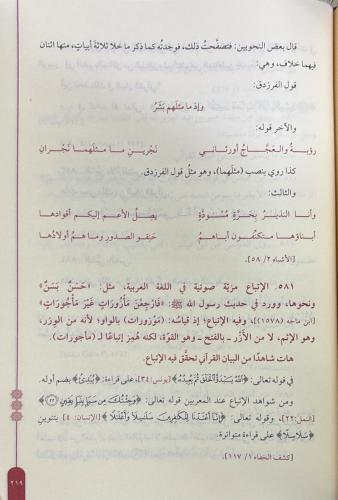 قال بعض النحويين: فتصفَّحتُ ذلك، فوجدتُه كما ذكر ما خلا ثلاثة أبياتٍ، منها اثنان
فيهما خلاف، وهي:
قول الفرزدق:
وإذ ما مثلَهم بَشَرُ
والآخر قوله:
رؤبةُ والعجَّاجُ أورثاني نَجْرينِ ما مثلَهما نَجْرانِ
كذا روي بنصب (مثلَهما)، وهو مثلُ قول الفرزدق.
والثالث:
وأنا النذيرُ بحَرَّةٍ مُسْوَدَّةٍ يصِلُ الأعمُّ إليكم أقوادها
أبناؤها متكنِّفون أباهمُ حَنِقو الصدورِ وما همُ أولادُها
[الأشباه ٢/ ٥٨].
٥٨١. الإتباع مزيّة صوتية في اللغة العربية، مثل: «حَسَنٌ بَسَنٌ»
ونحوها، وورد في حديث رسول الله ﷺ: «فارْجِعْنَ مَأْزُوراتٍ غَيْرَ مَأْجُوراتٍ»
[ابن ماجه (١٥٧٨)]، وفيه الإتباع؛ إذ قياسُه: (مَوْزورات) بالواو؛ لأنه من الوِزر،
وهو الإثم، لا من الأَزْر ـ بالفتح ـ وهو القوَّة، لكنه هُمِز إتباعًا لـ (مأجورات).
هات شاهدًا من البيان القرآني تحقَّق فيه الإتباع.
في قوله تعالى: ﴿اللَّهُ يَبْدَؤُا الْخَلْقَ ثُمَّ يُعِيدُهُ﴾ [يونس: ٣٤]، على قراءة: ﴿يُبْدِئُ﴾ بضم أوله.
ومن شواهد الإتباع عند المعربين قوله تعالى: ﴿وَجِئْتُكَ مِن سَبَإٍ بِنَبَإٍ يَقِينٍ ٢٢﴾
[النمل: ٢٢]، وقوله تعالى: ﴿إِنَّا أَعْتَدْنَا لِلْكَافِرِينَ سَلَاسِلًا وَأَغْلَالًا﴾ [الإنسان: ٤] بتنوين
﴿سَلَاسِلًا﴾ على قراءة متواترة.
[كشف الخفاء ١/ ١١٧].
٢١٩